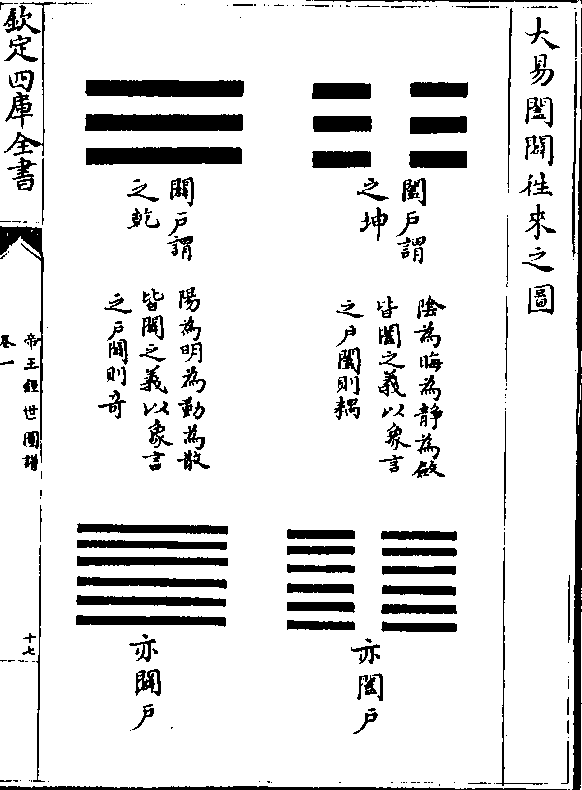 大易闔闢往來之圖
闔戶謂
之坤
陰為晦為靜為斂
皆闔之義以象言
之戶闔則耦
亦闔戶
闢戶謂
之乾
陽為明為動為散
皆闢之義以象言
之戶闢則奇
亦闢戶
欽定四庫全書
帝王經世圖譜
卷一
十七